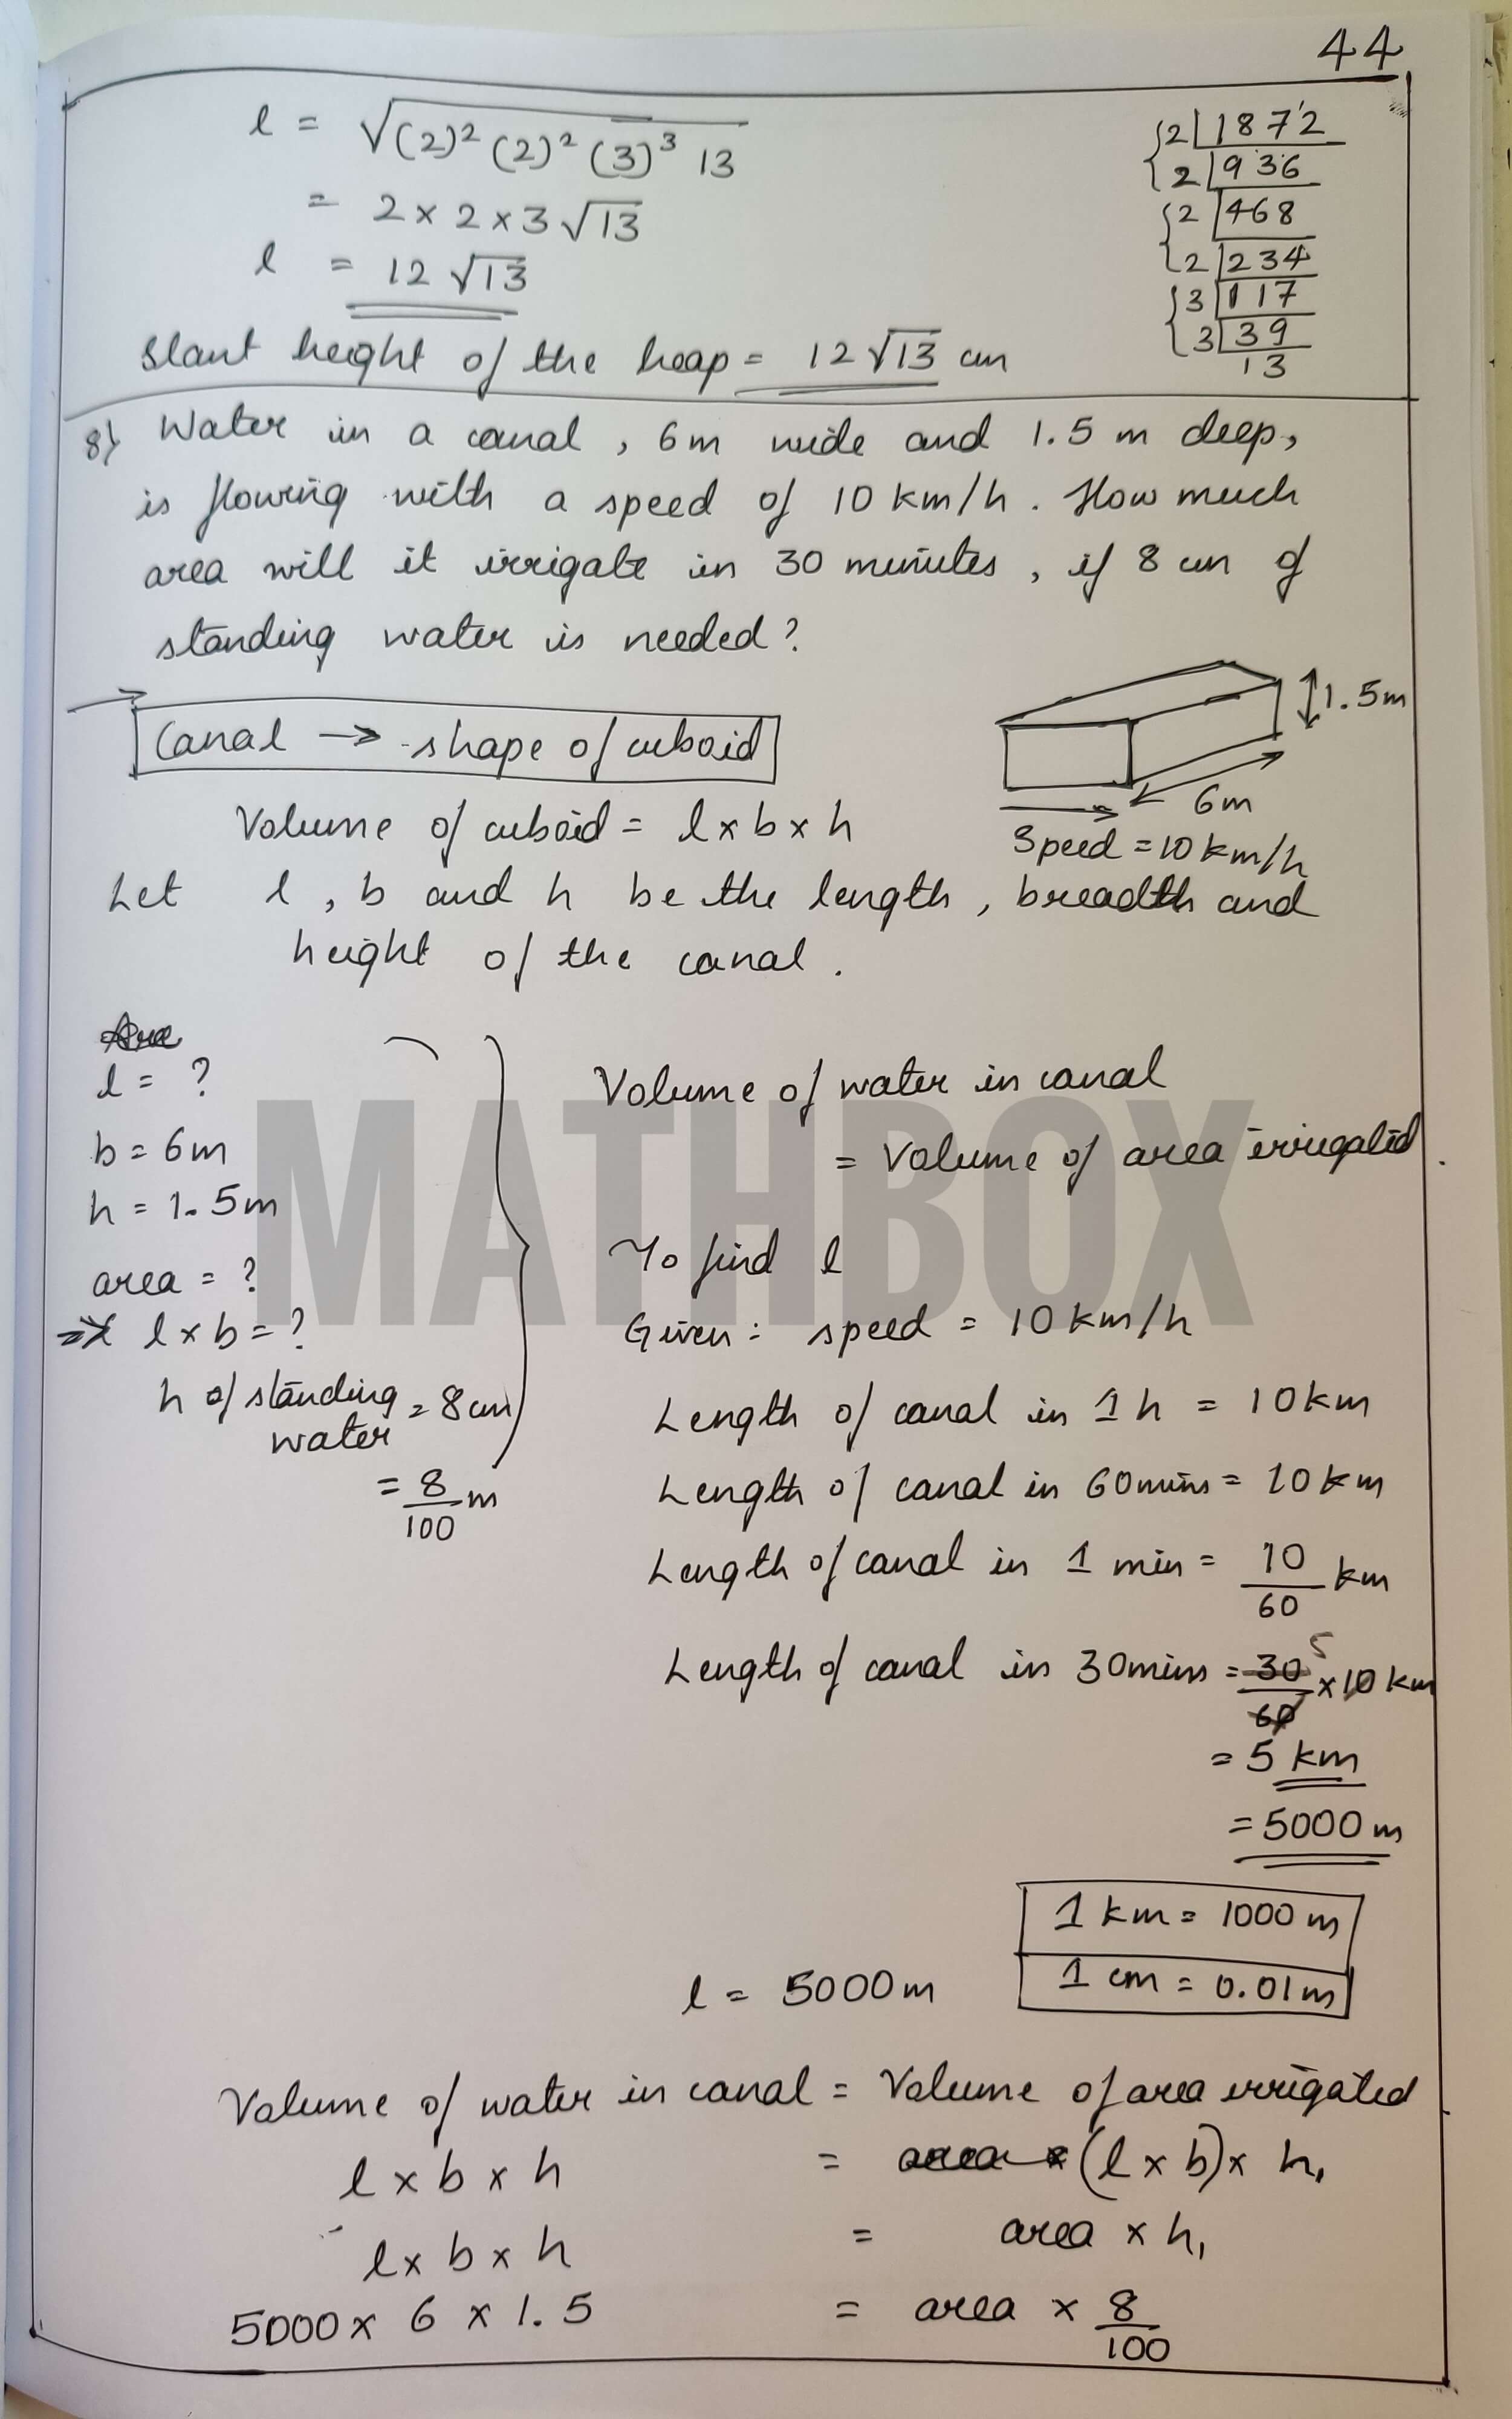 44
l = √(2)² (2)² (3)³ 13
= 2 × 2 × 3 √13
l = 12 √13
Slant height of the heap = 12 √13 cm
2 | 1872
2 | 936
2 | 468
2 | 234
3 | 117
3 | 39
13
8) Water in a canal, 6m wide and 1.5 m deep,
is flowing with a speed of 10 km/h. How much
area will it irrigate in 30 minutes, if 8 cm of
standing water is needed?
Canal → shape of cuboid
1.5m
6m
Speed = 10 km/h
Volume of cuboid = l × b × h
Let l, b and h be the length, breadth and
height of the canal.
l = ?
b = 6m
h = 1.5m
area = ?
⇒ l × b = ?
h of standing water = 8 cm
= 8/100 m
Volume of water in canal
= Volume of area irrigated.
To find l
Given: speed = 10 km/h
Length of canal in 1 h = 10 km
Length of canal in 60 mins = 10 km
Length of canal in 1 min = 10/60 km
Length of canal in 30 mins = 30/60 × 10 km
5
= 5 km
= 5000 m
1 km = 1000 m
1 cm = 0.01 m
l = 5000 m
Volume of water in canal = Volume of area irrigated.
l × b × h = (l × b) × h₁
l × b × h = area × h₁
5000 × 6 × 1.5 = area × 8/100
MATHBOX